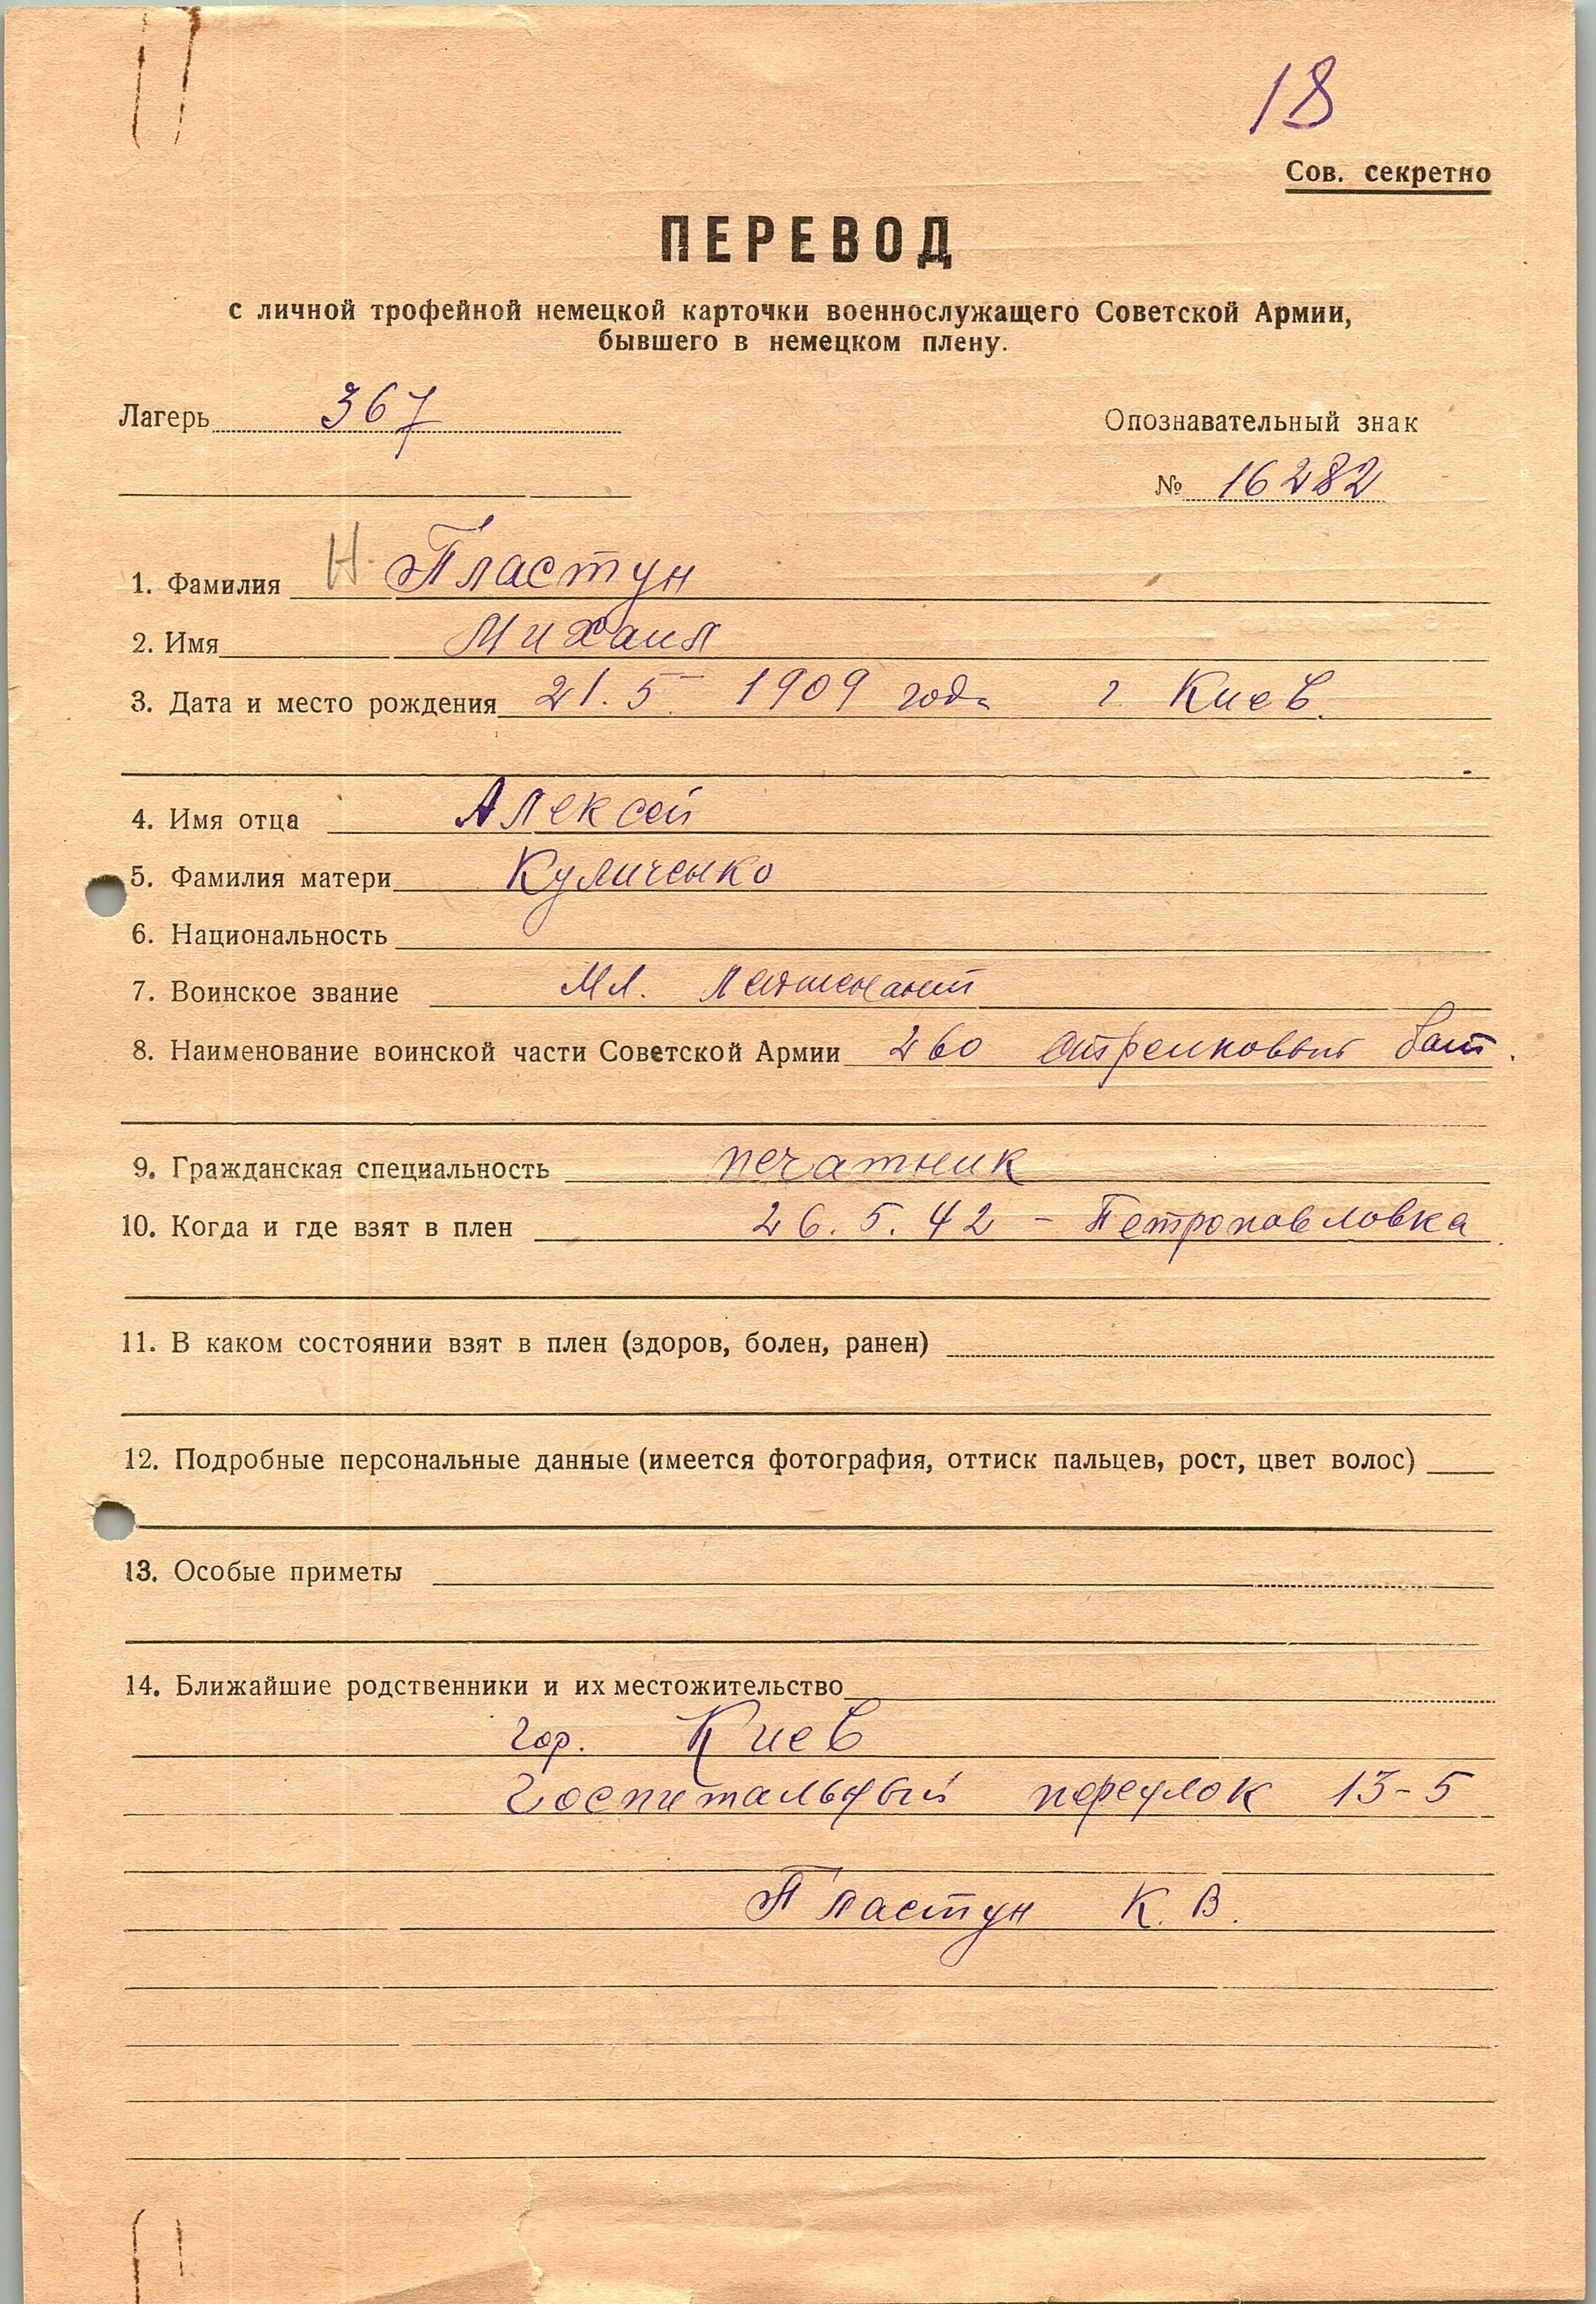 18
Сов. секретно
ПЕРЕВОД
с личной трофейной немецкой карточки военнослужащего Советской Армии,
бывшего в немецком плену.
Лагерь 367
Опознавательный знак
№ 16282
1. Фамилия Н. Пластун
2. Имя Михаил
3. Дата и место рождения 21.5 1909 года г Киев.
4. Имя отца Алексей
5. Фамилия матери Куличенко
6. Национальность
7. Воинское звание Мл. лейтенант
8. Наименование воинской части Советской Армии 260 стрелковый бат.
9. Гражданская специальность печатник
10. Когда и где взят в плен 26.5.42 - Петропавловка
11. В каком состоянии взят в плен (здоров, болен, ранен)
12. Подробные персональные данные (имеется фотография, оттиск пальцев, рост, цвет волос)
13. Особые приметы
14. Ближайшие родственники и их местожительство
гор. Киев
Госпитальный переулок 13-5
Пластун К. В.